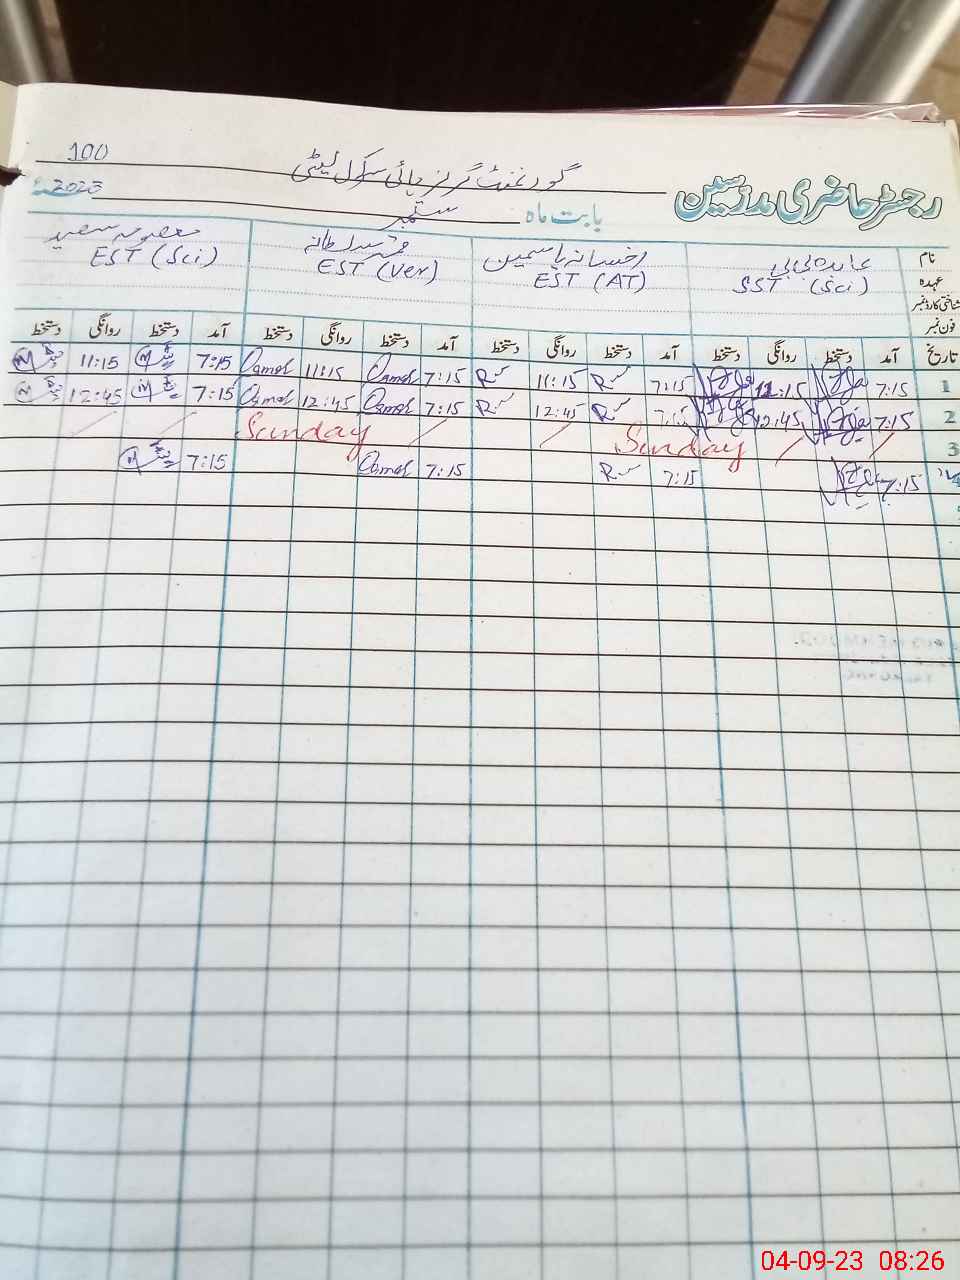 100
گورنمنٹ گرلز ہائی سکول
رجسٹر حاضری مدرسین
بابت ماہ ستمبر 2023ء
نام عابدہ بی بی رخسانہ یاسمین معصومہ سعید
عہدہ SST (Sci) EST (AT) EST (Ver) EST (Sci)
شناختی کارڈ نمبر
فون نمبر
تاریخ آمد دستخط روانگی دستخط آمد دستخط روانگی دستخط آمد دستخط روانگی دستخط آمد دستخط روانگی دستخط
1 7:15 11:15 7:15 11:15 7:15 11:15 7:15 11:15
2 7:15 12:45 7:15 12:45 7:15 12:45 7:15 12:45
3 Sunday Sunday
7:15 7:15 7:15 7:15
04-09-23 08:26